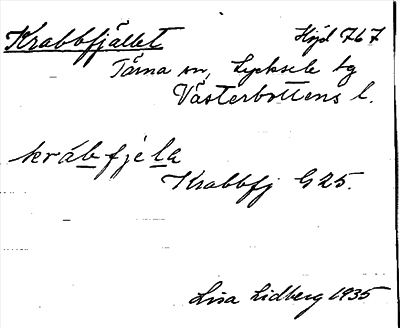 Krabbfjället Höjd 767
Tärna sn, Lycksele tg
Västerbottens l.
krábfjela
Krabbfj G25.
Lisa Lidberg 1935